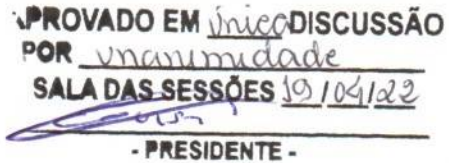 APROVADO EM única DISCUSSÃO
POR unanimidade
SALA DAS SESSÕES 19/04/22
- PRESIDENTE -